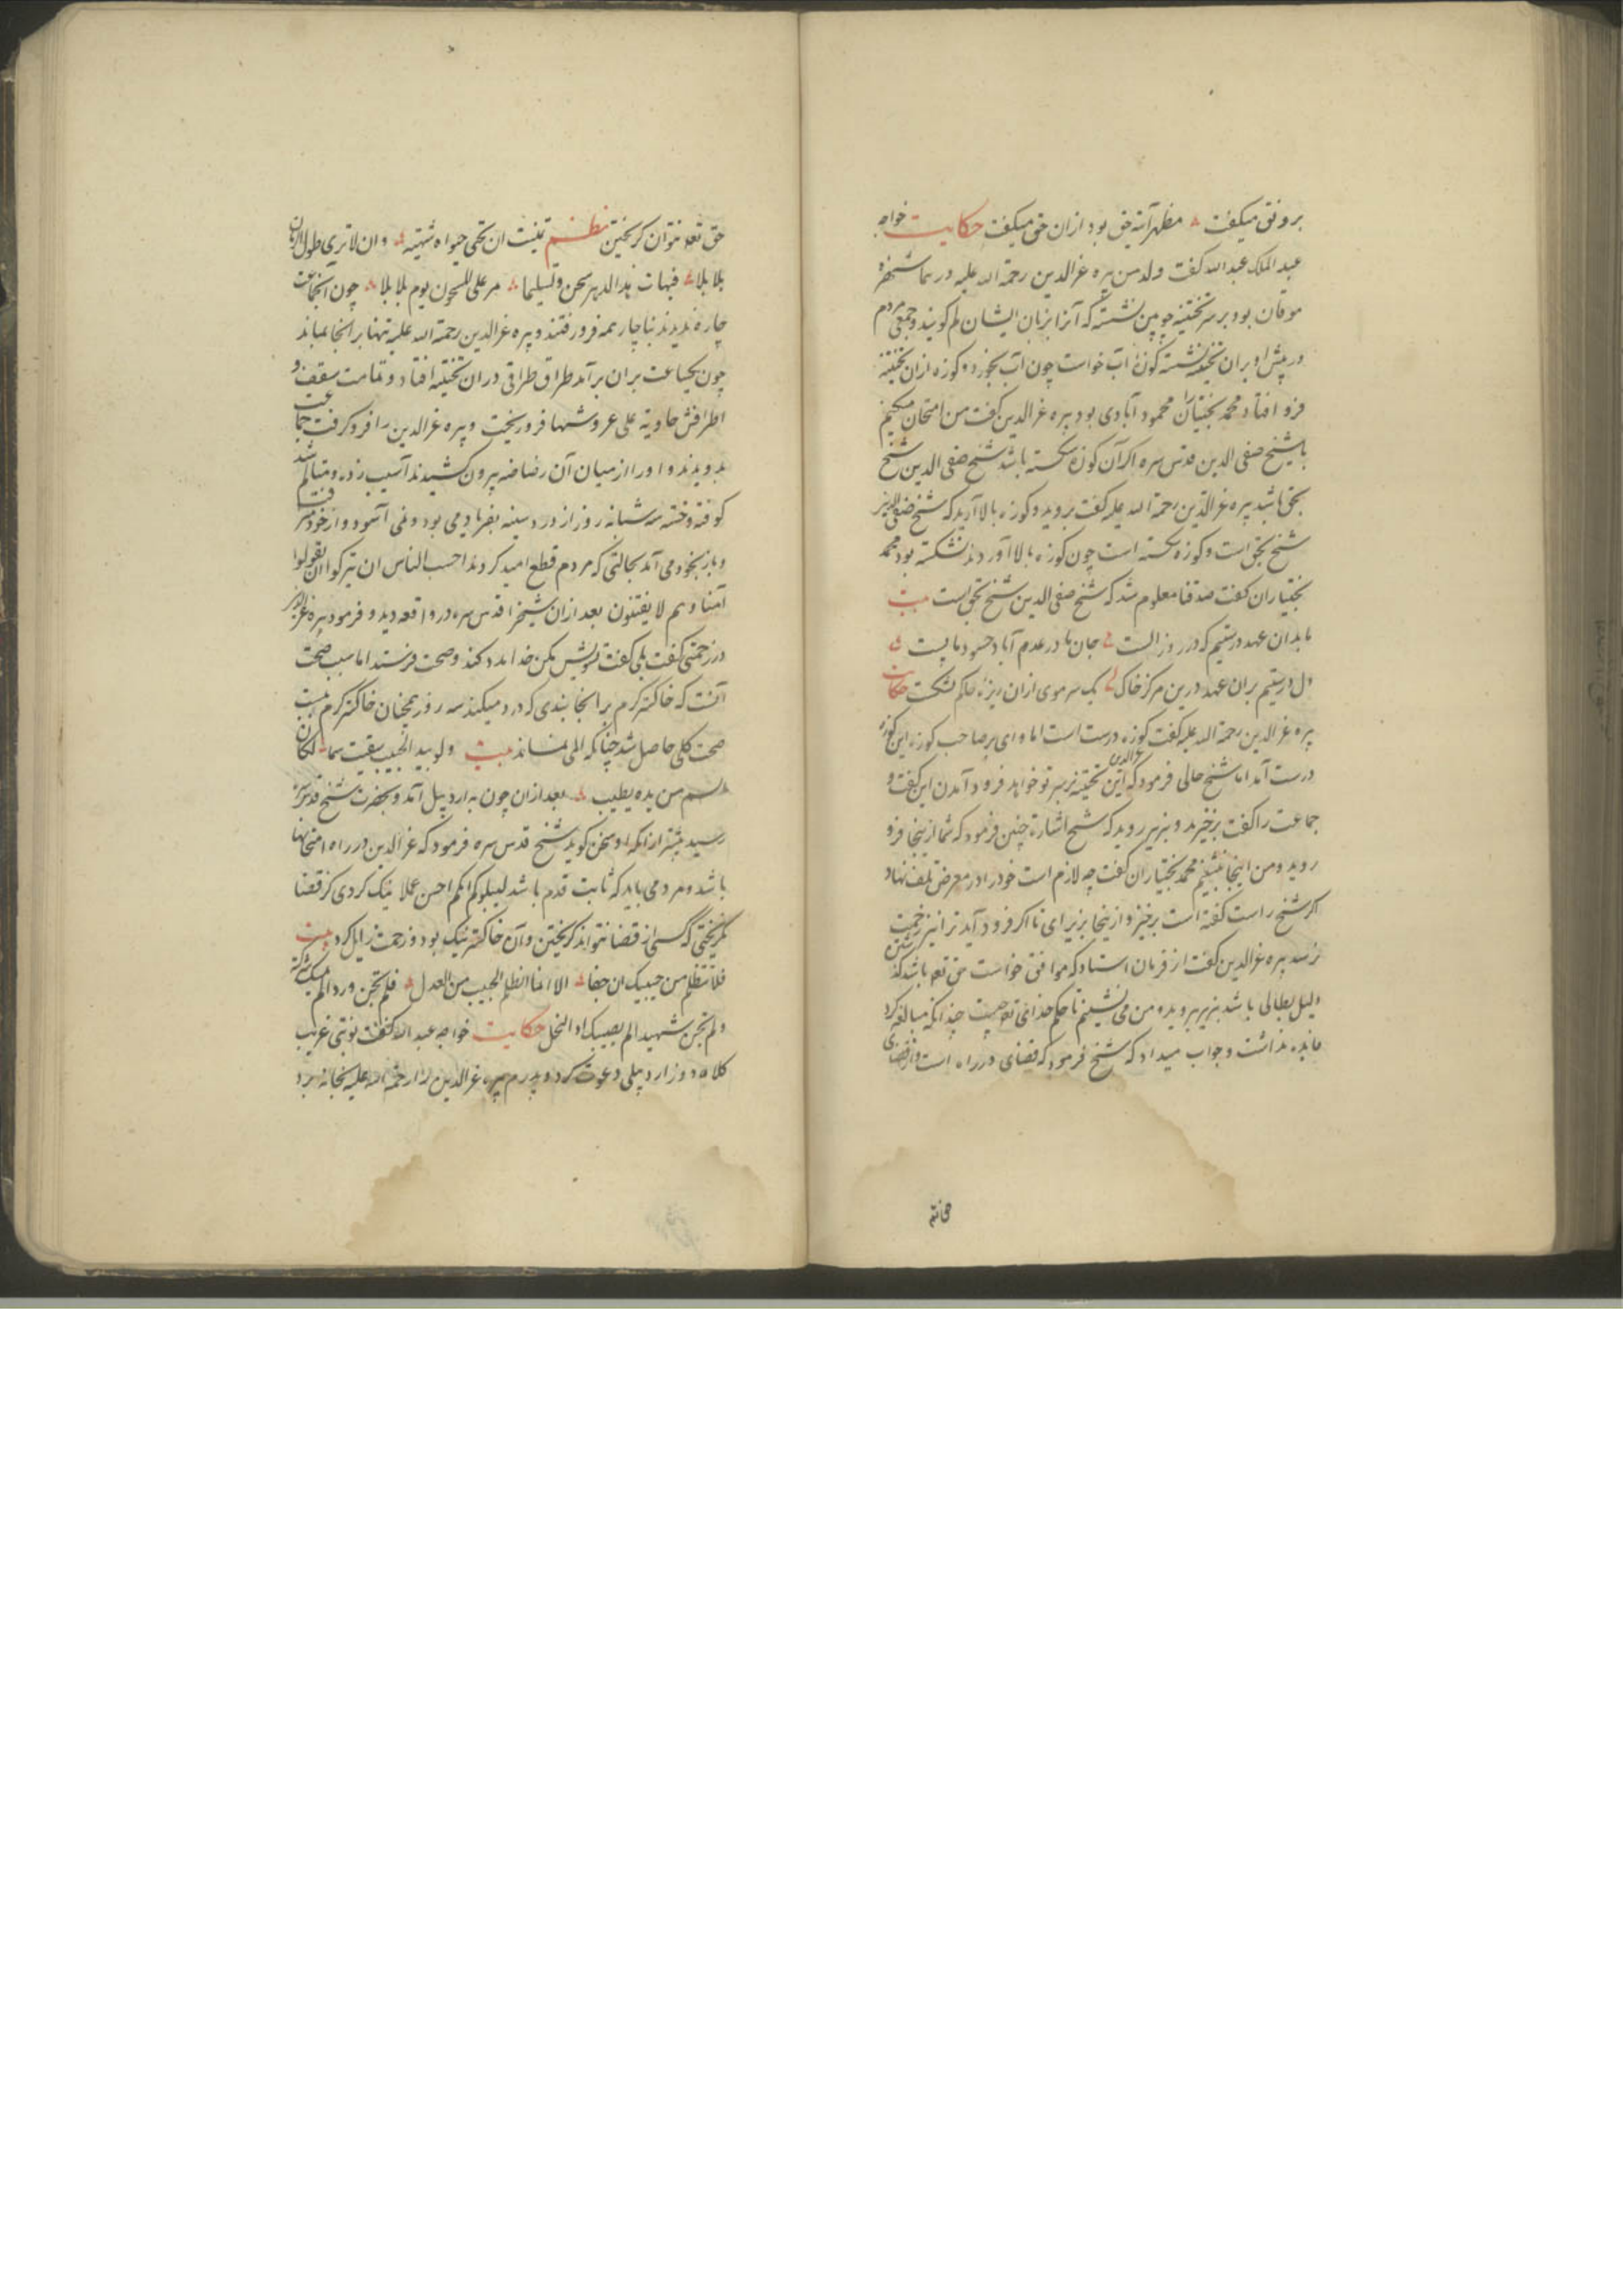 بر وفق میکفت مظهر آینه حق بود ازان حق میکفت حکایت خواجه
عبد الملک عبد الله کفت ولد من پیره عز الدین رحمة الله علیه در
موقان بود بر سر تختینه چوبین نشسته که آنرا بزبان ایشان لم کویند و جمعی مردم
در پیش او بران تخته نشسته کوزهٔ آب خواست چون آب بخورد و کوزه ازان تختینه
فرو افتاد محمد بختیاران محمود آبادی بود پیره عز الدین کفت من امتحان میکنم
با شیخ صفی الدین قدس سره اکر آن کوزه شکسته باشد شیخ صفی الدین شیخ
بحق باشد پیره عز الدین رحمة الله علیه کفت بروید و کوزه بالا آرید که شیخ صفی الدین
شیخ بحق است و کوزه شکسته است چون کوزه بالا آوردند نشکسته بود محمد
بختیاران کفت صدقنا معلوم شد که شیخ صفی الدین شیخ بحق است بیت
ما بدان عهد درستیم که در روز الست جان ما در عدم آباد
دل درستیم بران عهد درین مرکز خاک یک سر موی ازان نشکست حکایت
پیره عز الدین رحمة الله علیه کفت کوزه درست است اما وای بر صاحب کوزه این کوزه
درست آمد اما شیخ حالی فرمود که عز الدین این تختینه بزیر تو خواهد فرود آمدن این کفت و
جماعت را کفت برخیزید و بزیر روید که شیخ اشارة چنین فرمود که شما ازینجا فرو
روید و من اینجا بنشینم محمد بختیاران کفت چه لازم است خود را در معرض تلف نهاد
اکر شیخ راست کفته است برخیز و ازینجا بزیر آی تا اکر فرود آید ترا نیز زحمت
نرسد پیره عز الدین کفت از فرمان استاد که موافق خواست حق تعه باشد کذشتن
دلیل بطالی باشد بزیر بروید و من می نشینم تا حکم خدای تعه چیست چندانکه مبالغه کرد
فایده نداشت و جواب میداد که شیخ فرمود که قضای در راه است و از قضای
حق تعه نتوان کریختن نظم تمنیت ان تحیی حیواه شهیه وان لا تری طول الزمان
بلا بلا فهیهات هذا الدهر سجن وقلیلما یمر علی المسجون یوم بلا بلا چون آنجماعت
چاره ندیدند بناچار همه فرو رفتند و پیره عز الدین رحمة الله علیه تنها بر آنجا بماند
چون یکساعت بران برآمد طراق طراقی دران تختینه افتاد و تمامت سقف و
اطرافش خاویة علی عروشها فرو ریخت و پیره عز الدین را فرو کرفت جماعت
بدویدند و او را از میان آن بیرون کشیدند آسیب زده و متالم شد
کوفته و خسته سه شبانه روز از درد سینه بفریاد می بود و نمی آسود و از خود میرفت
و باز بخود می آمد بحالتی که مردم قطع امید کردند احسب الناس ان یترکوا ان یقولوا
آمنا وهم لا یفتنون بعد ازان شیخ را قدس سره در واقعه دید و فرمود پیره عز الدین
در زحمتی کفت بلی کفت تشویش مکن خدا مدد کند و صحت فرستد اما سبب صحت
آنست که خاکستر کرم بر آنجا بندی که درد میکند سه روز همچنان خاکستر کرم ببست
صحت کلی حاصل شد چنانکه المی نماند بیت ولو بید الحبیب سقیت سما لکان
السم من یده یطیب بعد ازان چون به اردبیل آمد و بحضرت شیخ قدس سره
رسید پیشتر از آنکه او سخن کوید شیخ قدس سره فرمود که عز الدین در راه امتحانها
باشد و مرد می باید که ثابت قدم باشد لیبلوکم ایکم احسن عملا نیک کردی کز قضا
نکریختی که کسی از قضا نتواند کریختن و آن خاکستر نیک بود و زحمت زایل کرد بیت
فلا تنظلم من حبیبک ان جفا الا انما الظلم الحبیب من العدل فلم تجن ورد
ولم تجن شهدا لم یصیبک اذ النحل حکایت خواجه عبد الله کفت نوبتی غریب
کلاه دوز اردبیلی دعوت کرد و پدرم پیره عز الدین را رحمة الله علیه بخانه برد
حق تعه